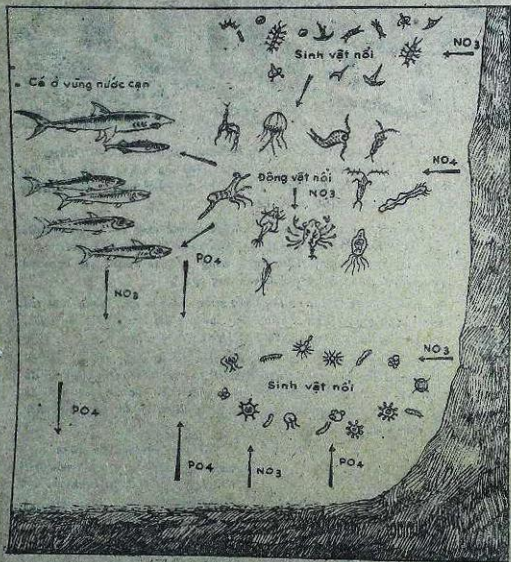 Sinh vật nổi
NO3
Cá ở vùng nước cạn
NO4
Động vật nổi
NO3
PO4
NO3
NO3
Sinh vật nổi
PO4
PO4
NO3
PO4